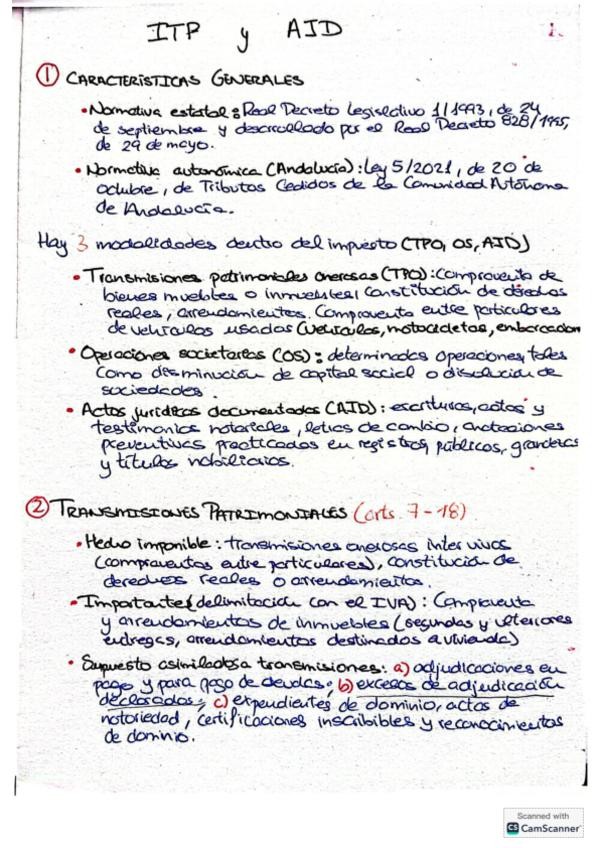 ITP y AJD
1.
① CARACTERÍSTICAS GENERALES
• Normativa estatal: Real Decreto Legislativo 1/1993, de 24
de septiembre y desarrollado por el Real Decreto 828/1995,
de 29 de mayo.
• Normativa autonómica (Andalucía): Ley 5/2021, de 20 de
octubre, de Tributos Cedidos de la Comunidad Autónoma
de Andalucía.
Hay 3 modalidades dentro del impuesto (TPO, OS, AJD)
• Transmisiones patrimoniales onerosas (TPO): compraventa de
bienes muebles o inmuebles, constitución de derechos
reales, arrendamientos. Compraventa entre particulares
de vehículos usados (vehículos, motocicletas, embarcacion
• Operaciones societarias (OS): determinadas operaciones, tales
como disminución de capital social o disolución de
sociedades.
• Actos jurídicos documentados (AJD): escrituras, actas y
testimonios notariales, letras de cambio, anotaciones
preventivas practicadas en registros públicos, grandezas
y títulos nobiliarios.
② TRANSMISIONES PATRIMONIALES (arts. 7-18)
• Hecho imponible: transmisiones onerosas inter vivos
(compraventas entre particulares), constitución de
derechos reales o arrendamientos.
• Importante (delimitación con el IVA): Compraventa
y arrendamientos de inmuebles (segundas y ulteriores
entregas, arrendamientos destinados a vivienda)
• Supuestos asimilados a transmisiones: a) adjudicaciones en
pago y para pago de deudas; b) excesos de adjudicación
declarados; c) expedientes de dominio, actas de
notoriedad, certificaciones inscribibles y reconocimientos
de dominio.
Scanned with
CS CamScanner